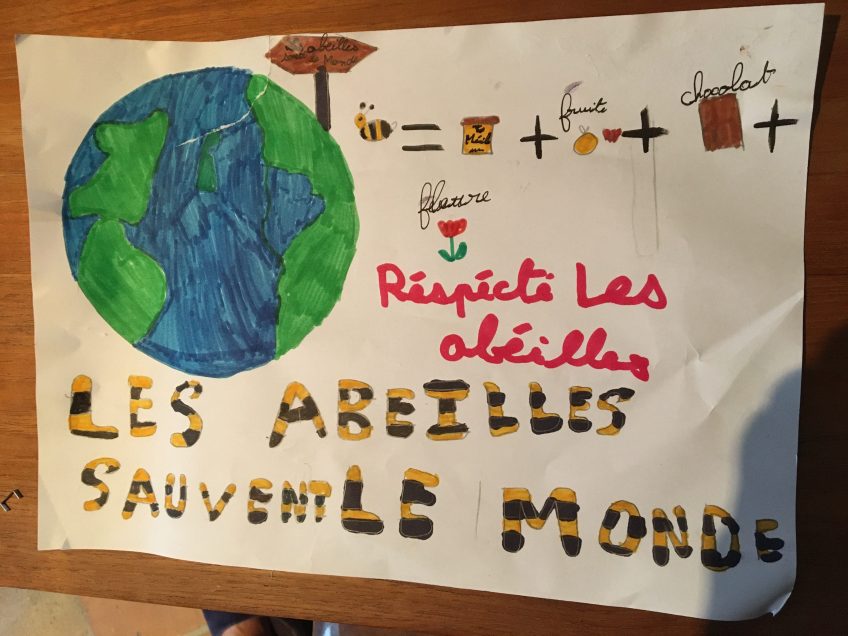 abeilles
Monde
fruits
chocolat
Miel
Réspécté Les
abéilles
LES ABEILLES
SAUVENT LE MONDE